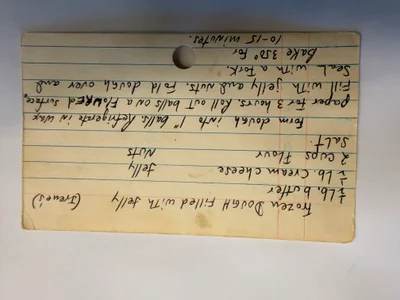 Frozen Dough Filled with Jelly (Irene's)
½ Lb. butter
½ Lb. Cream cheese Jelly
2 cups Flour Nuts
Salt.
Form dough into 1" balls. Refrigerate in wax
paper for 3 hours. Roll out balls on a Floured surface,
Fill with jelly and nuts. Fold dough over and
Seal with a Fork.
Bake 350° for
10-15 minutes.